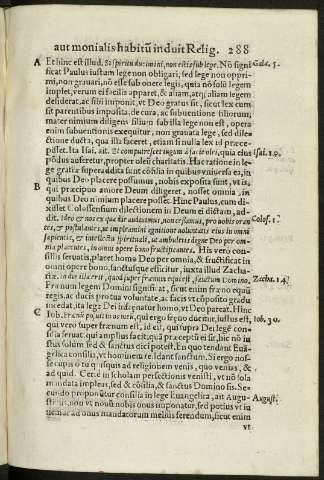 aut monialis habitū induit Relig. 288
A Et hinc est illud. Si spiritu ducimini, non estis sub lege. Nō signi Gala. 5.
ficat Paulus iustam lege non obligari, sed lege non oppri-
mi, non grauari, nō esse sub onere legis, quia nō solū legem
implet, verum ei facilis apparet, & aliam, atq; aliam legem
desiderat, ac sibi imponit, vt Deo gratus sit, sicut lex cum
sit parentibus imposita, de cura, ac subuentione filiorum,
mater nimium diligens filium sub illa lege non est, opera
enim subuentionis exequitur, non grauata lege, sed dile-
ctione ducta, qua illa faceret, etiam si nulla lex id præce-
pisset. Ita Isai. ait. Et computrescet iugum à facie olei, quia eius Isai. 10.
pōdus auferetur, propter oleū charitatis. Hac ratione in le-
ge gratiæ superaddita sunt cōsilia in quibus vniuersa ex, in
quibus Deo placere possumus, nobis exposita sunt, vt is,
B qui præcipuo amore Deum diligeret, nosset omnia, in
quibus Deo nimium placere posset. Hinc Paulus, cum di-
xisset Colossensium dilectionem in Deum ei dictam, ad-
dit. Ideo & nos ex qua die audiuimus, non cessamus, pro vobis oran Colos. 1.
tes, & postulantes, vt impleamini agnitione voluntatis eius in omni
sapientia, & intellectu spirituali, vt ambuletis digne Deo per om-
nia placentes, in omni opere bono fructificantes. His vero con-
silijs seruatis, placet homo Deo per omnia, & fructificat in
omni opere bono, sanctusque efficitur, iuxta illud Zacha-
riæ. In die illa erit, quod super frænum equi est, sanctum Domino, Zacha. 14.
Frænum legem Domini significat, sicut enim fræno equus
regis, ac ducis protua voluntate, ac facis vt cōposito gradu
incedat, ita lege Dei indignatur homo, vt Deo pareat. Hinc
C Iob. Frænū posuit in ore, qui ergo fræno ducitur, iustus est, Iob. 30.
qui vero super frænum est, id est, qui supra Dei legē con-
silia seruat, qui amplius facit, quā præceptū ei sit, hic nō iu
stus solūm sed & sanctus dici potest. En quo tendunt Euā-
gelica consilia, vt hominem reddant sanctum. Si ergo nos-
se cupis quo tu quisquis ad religionem venis, quo venias, &
ad quid. Certè in scholam perfectionis venisti, vt nō sola
mandata impleas, sed & cōsilia, & sanctus Domino sis. Se-
cundo proponūtur consilia in lege Euangelica, ait Augu- Augusti.
stinus, non vt noua nobis onus imponatur, sed potius vt in
iugum ac onus mandatorum melius ferendum, sicut enim
vt